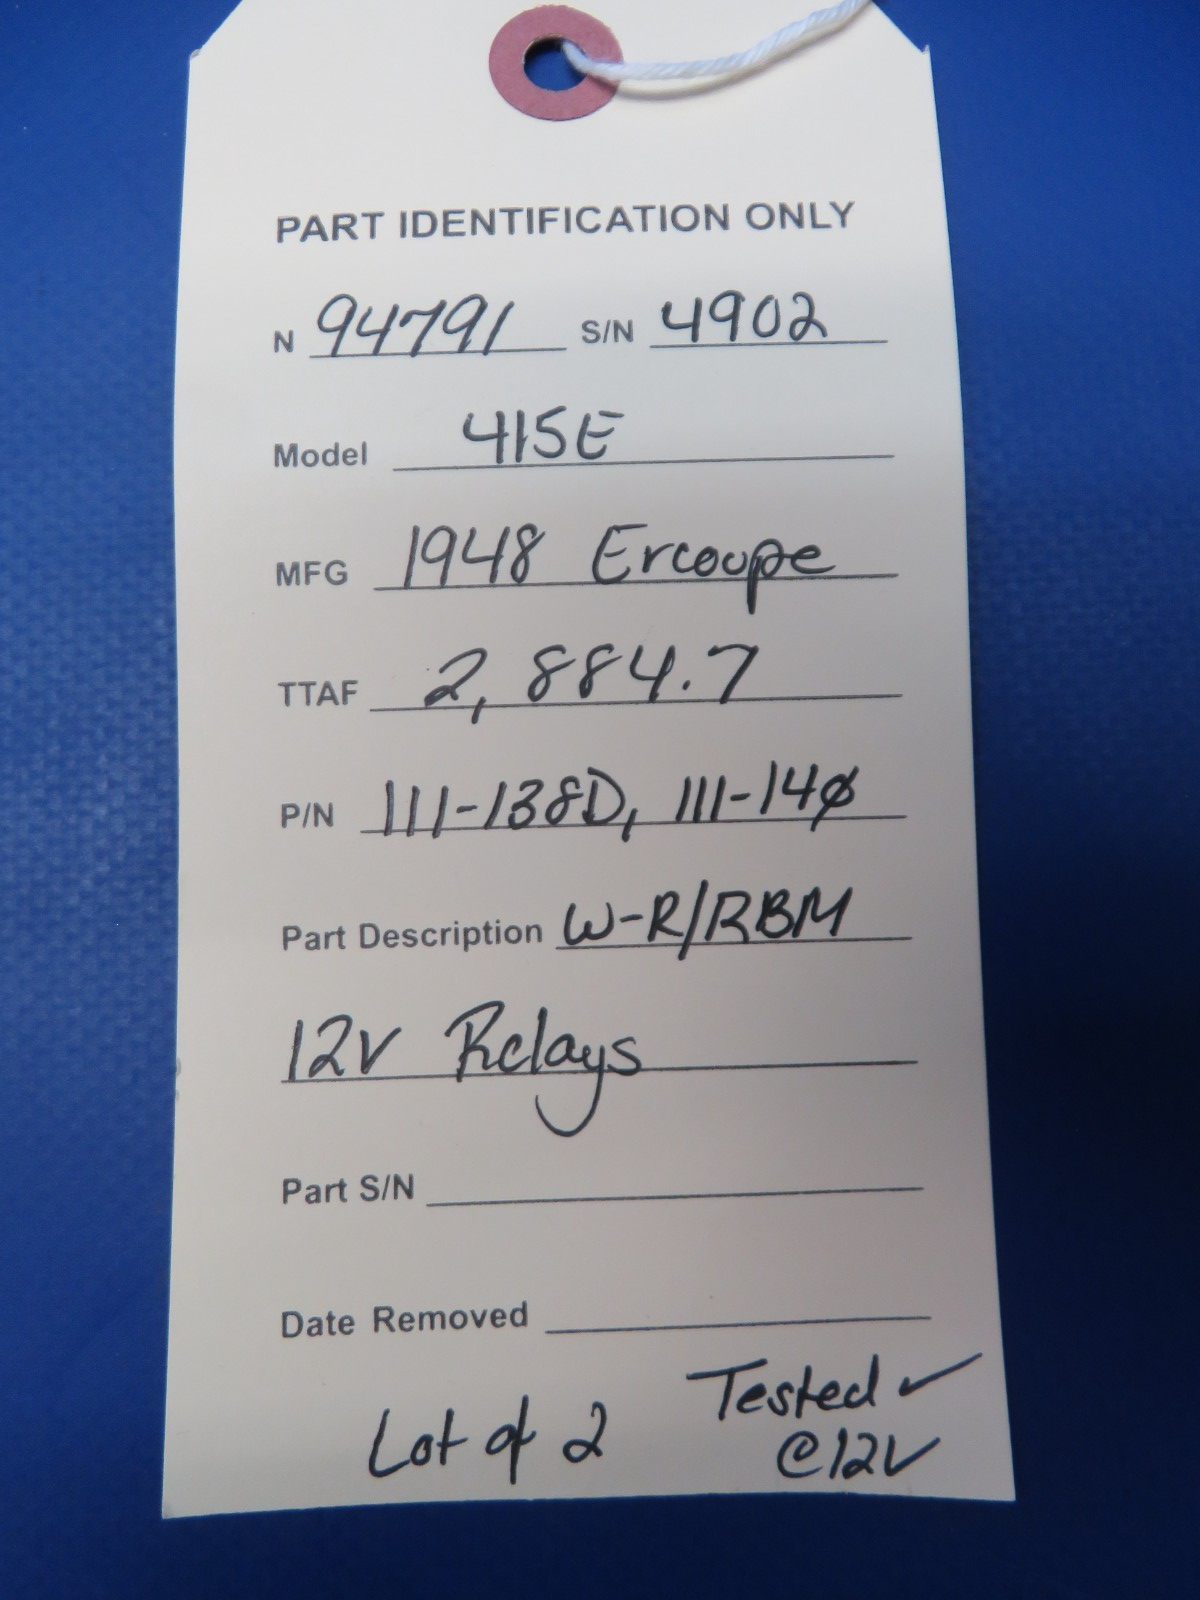 PART IDENTIFICATION ONLY
N 94791 S/N 4902
Model 415E
MFG 1948 Ercoupe
TTAF 2,884.7
P/N 111-138D, 111-140
Part Description W-R/RBM
12V Relays
Part S/N
Date Removed
Lot of 2 Tested ✓
@12V